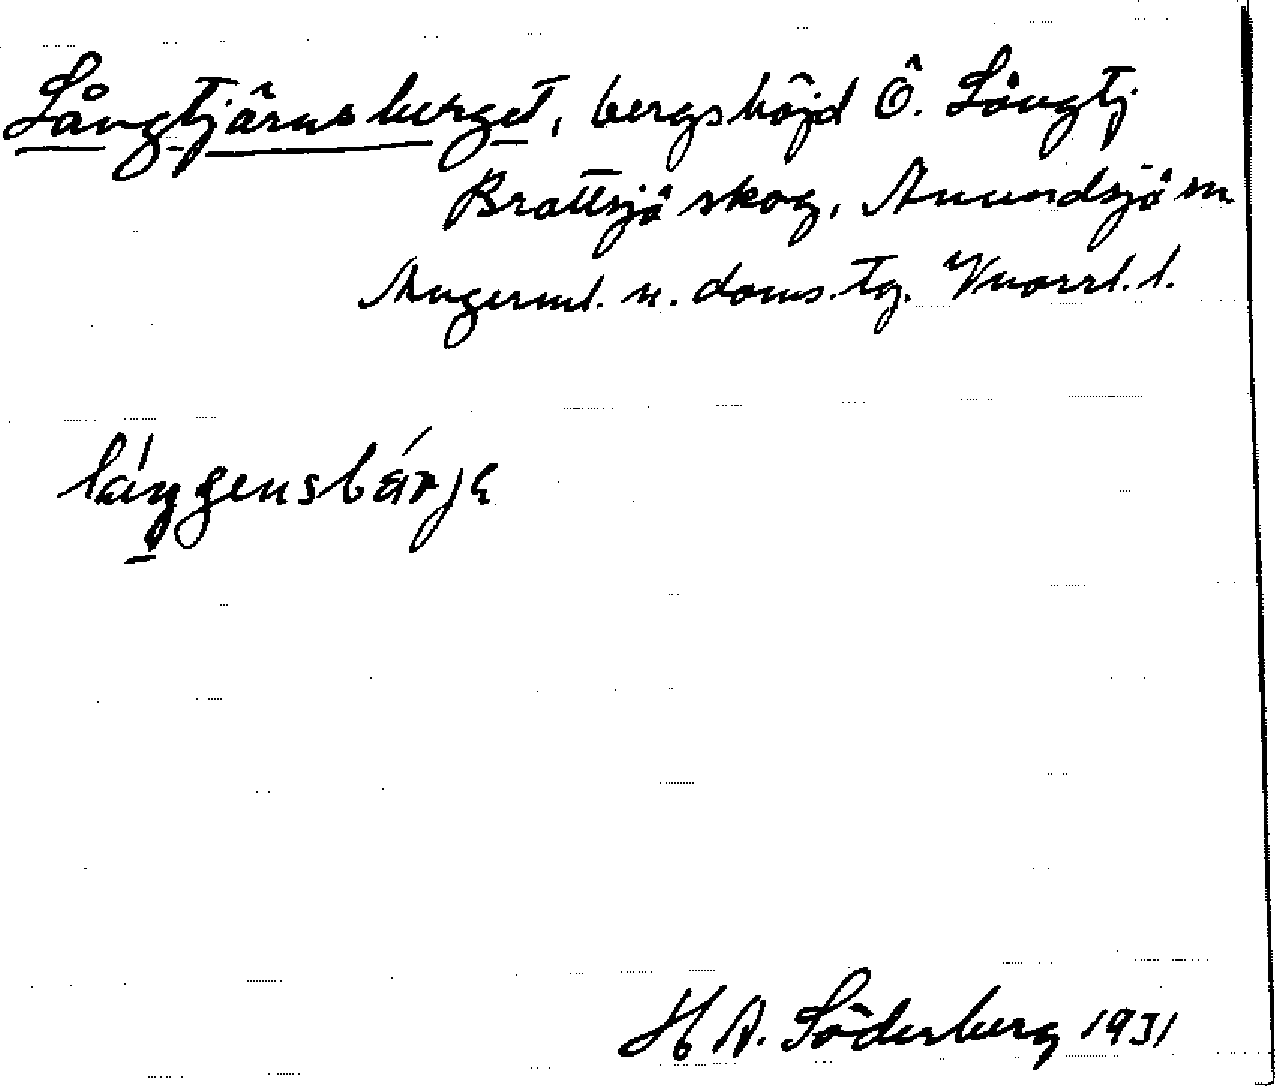 Långtjärnsberget, bergshöjd Ö. Långtj
Brattsjö skog, Anundsjö sn
Ångerml. n. doms. tg. Vnorrl. l.
láŋgensbǽrjε
H A. Söderberg 1931